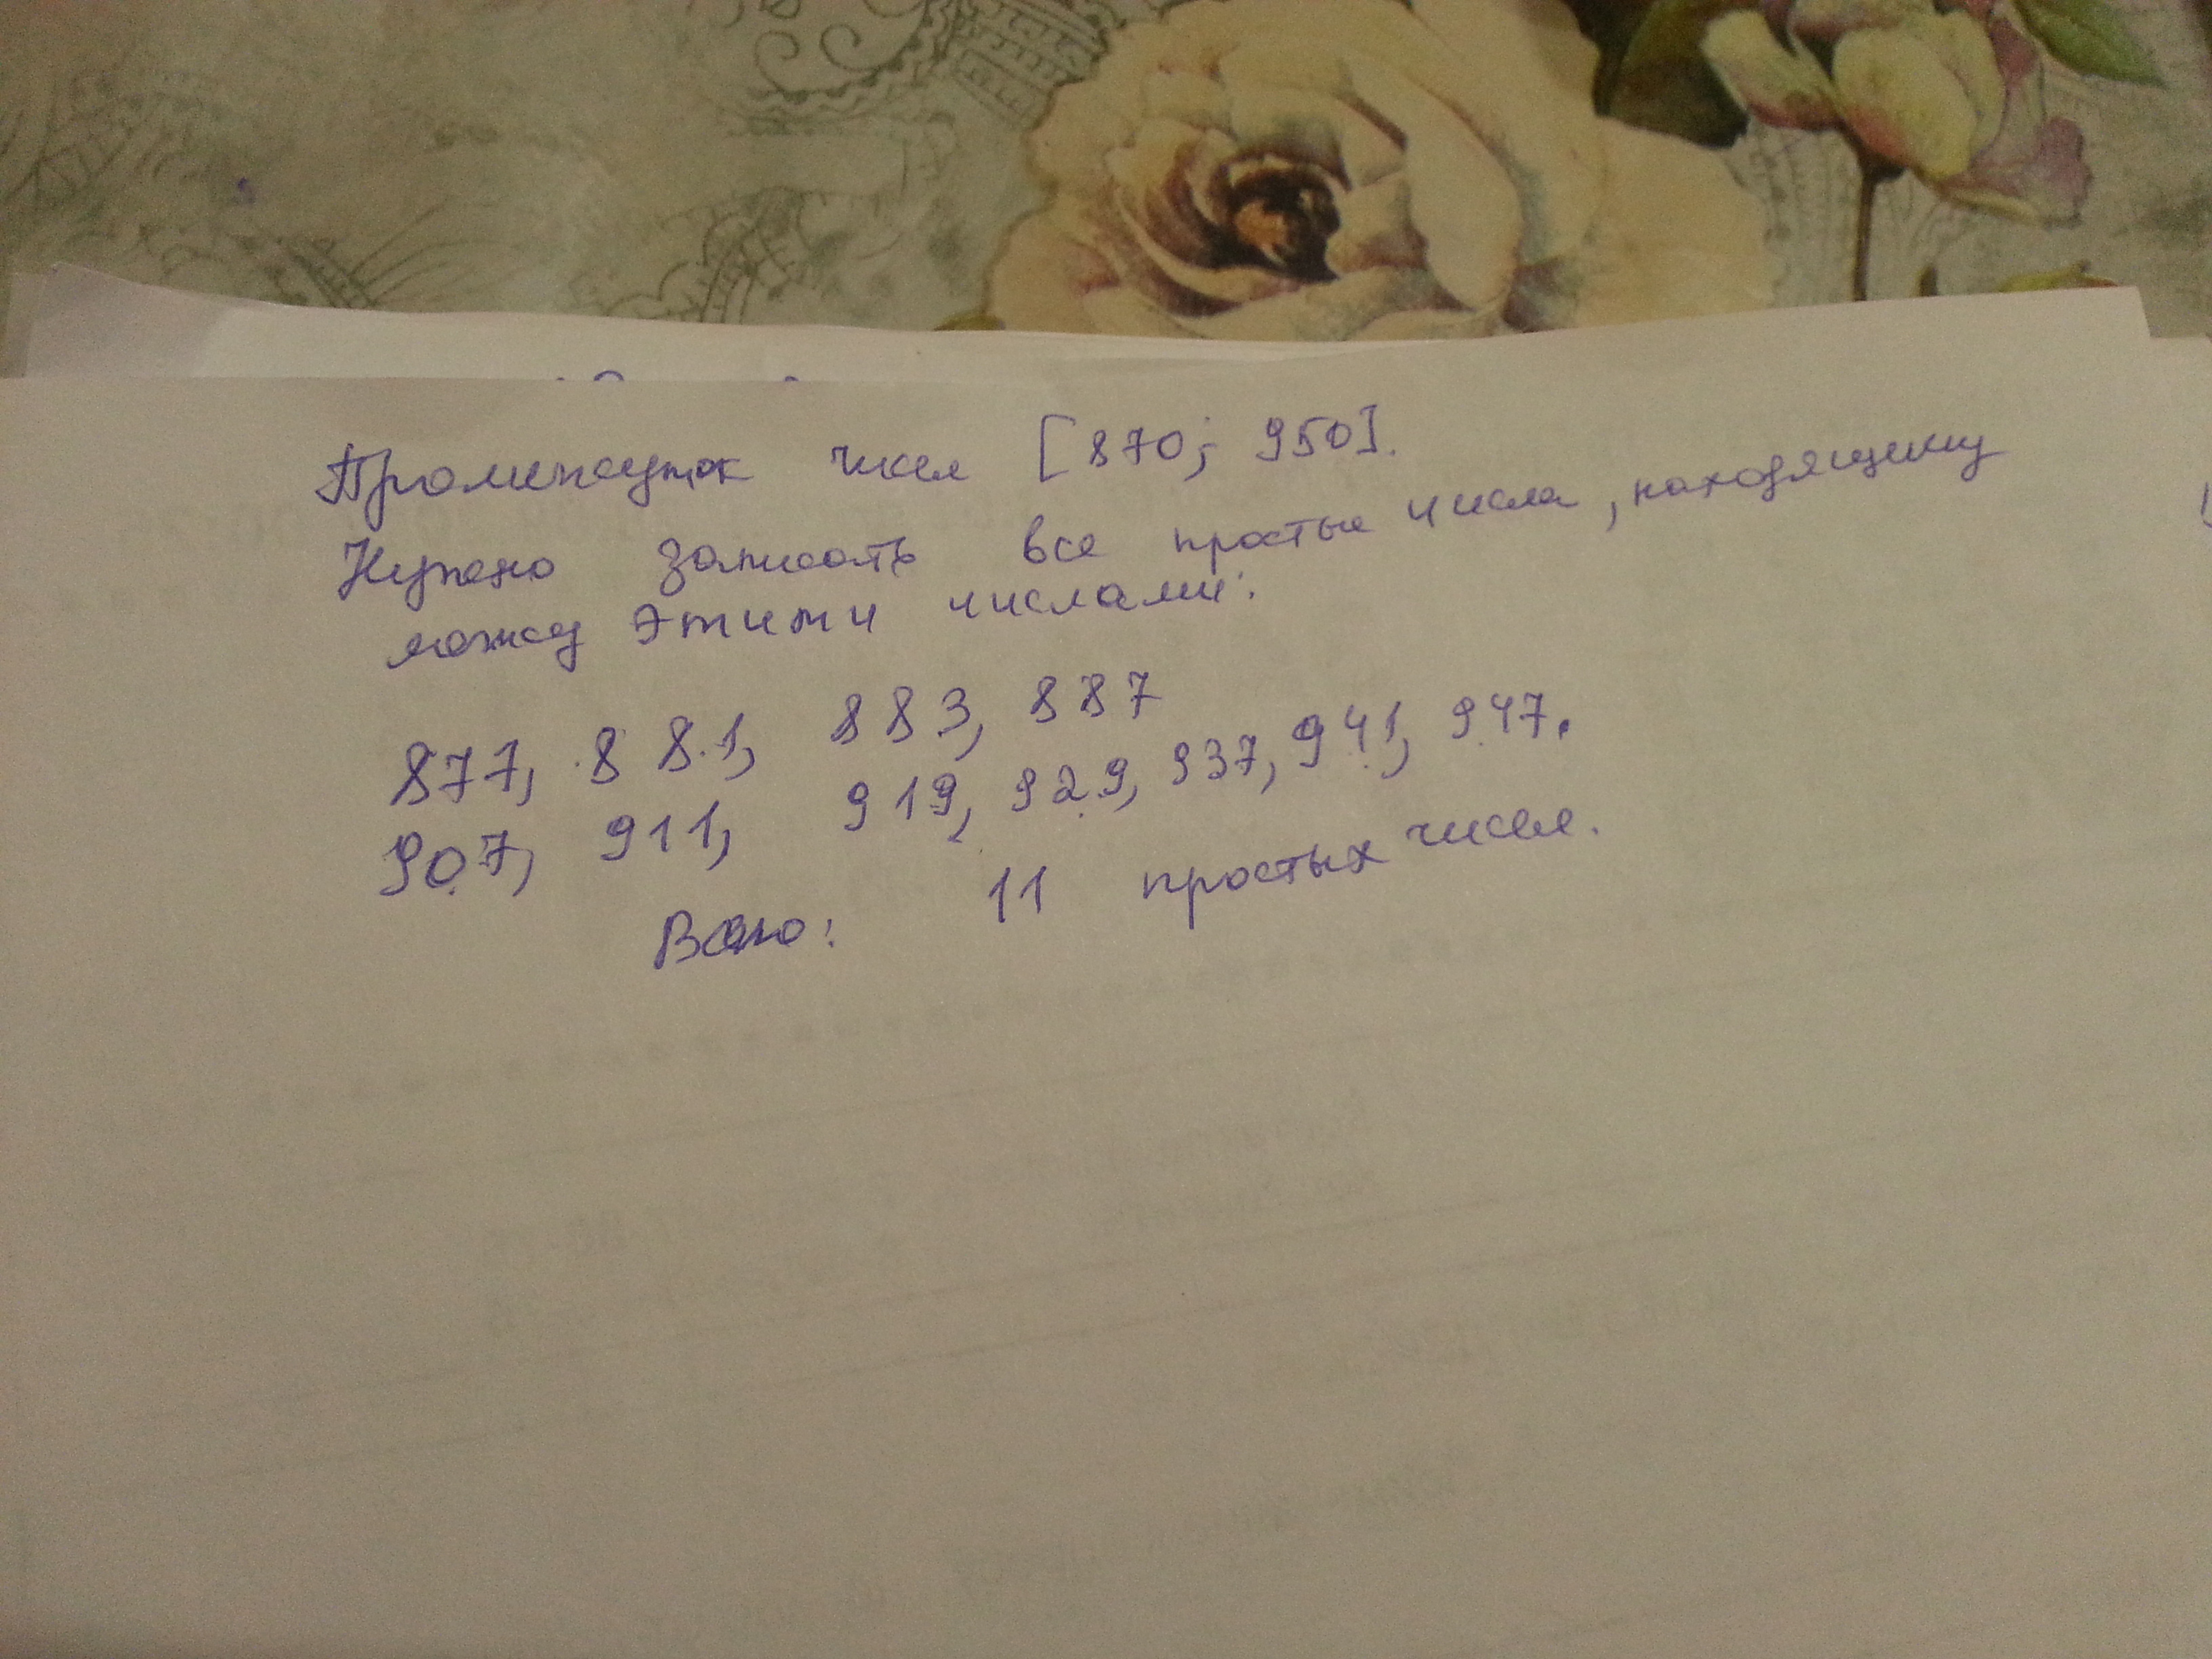 Промежуток чисел [870; 950].
Нужно записать все простые числа, находящиму
между этими числами:
877, 881, 883, 887
907, 911, 919, 929, 937, 941, 947.
Всего: 11 простых чисел.